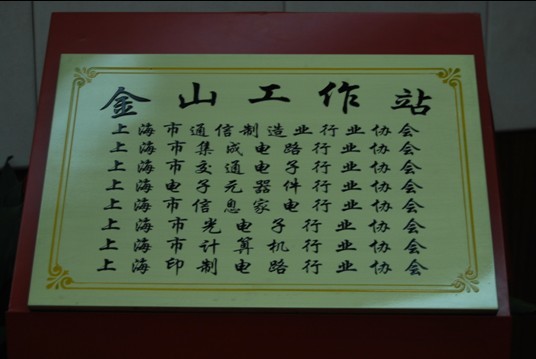 金山工作站
上海市通信制造业行业协会
上海市集成电路行业协会
上海市交通电子行业协会
上海电子元器件行业协会
上海市信息家电行业协会
上海市光电子行业协会
上海市计算机行业协会
上海印制电路行业协会